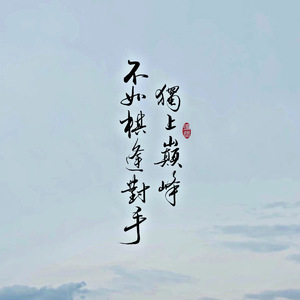 獨上巔峰
不如棋逢對手